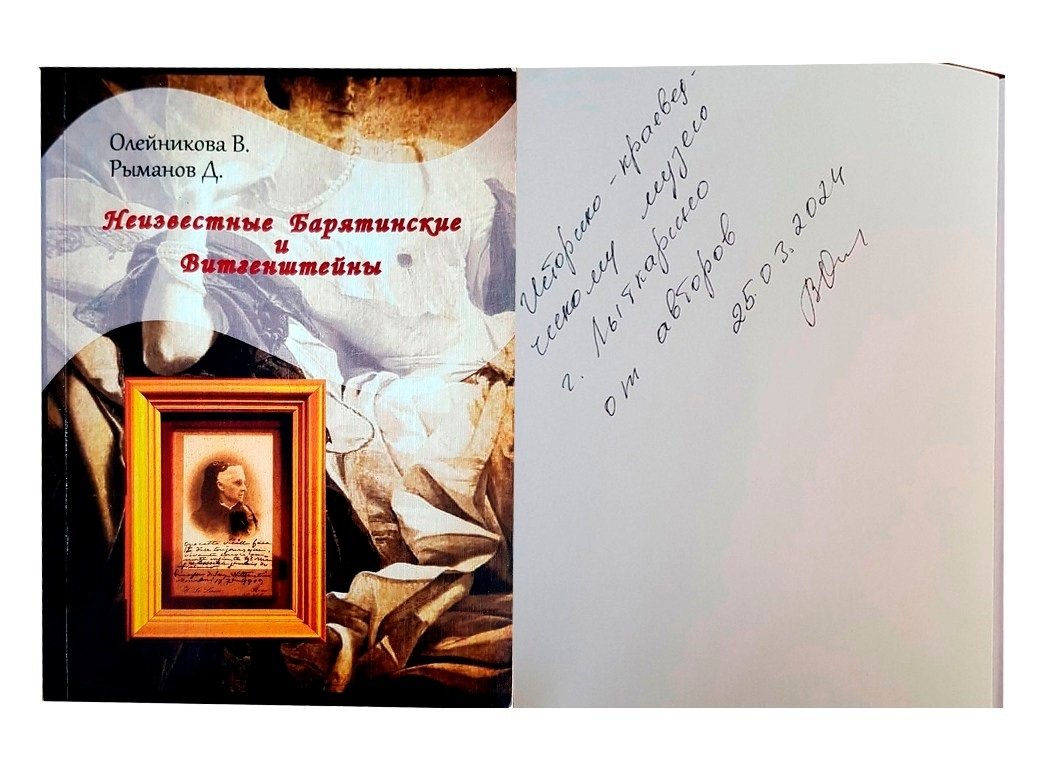 Олейникова В.
Рыманов Д.
Неизвестные Барятинские
и
Витгенштейны
Историко-краевед-
ческому музею
г. Лыткарино
от авторов
25.03.2024